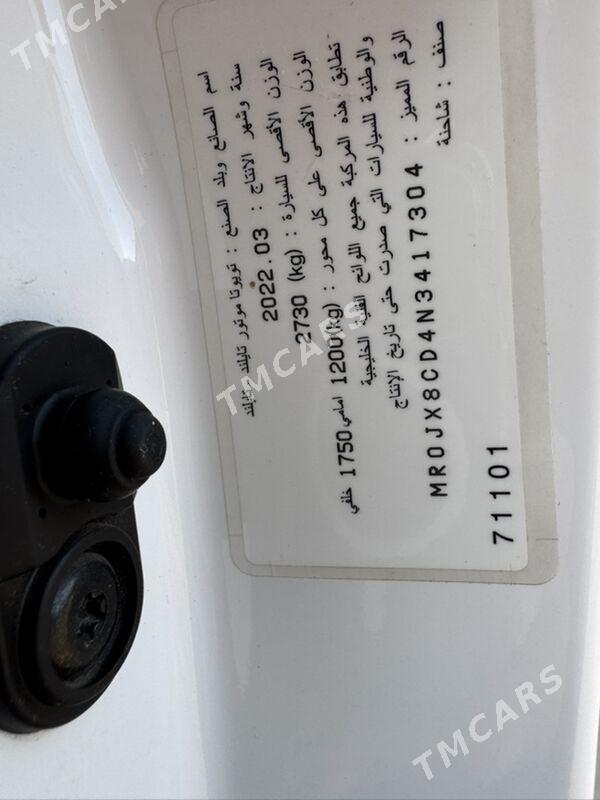 اسم الصانع وبلد الصنع : تويوتا موتور تايلند - تايلند
سنة وشهر الانتاج : 2022.03
الوزن الأقصى للسيارة : 2730 (kg)
الوزن الأقصى على كل محور : 1200(kg) امامي 1750 خلفي
تطابق هذه المركبة جميع اللوائح الفنية الخليجية
والوطنية للسيارات التي صدرت حتى تاريخ الإنتاج
الرقم المميز : MR0JX8CD4N3417304
صنف : شاحنة
71101
TMCARS
TMCARS
TMCARS
TMCARS